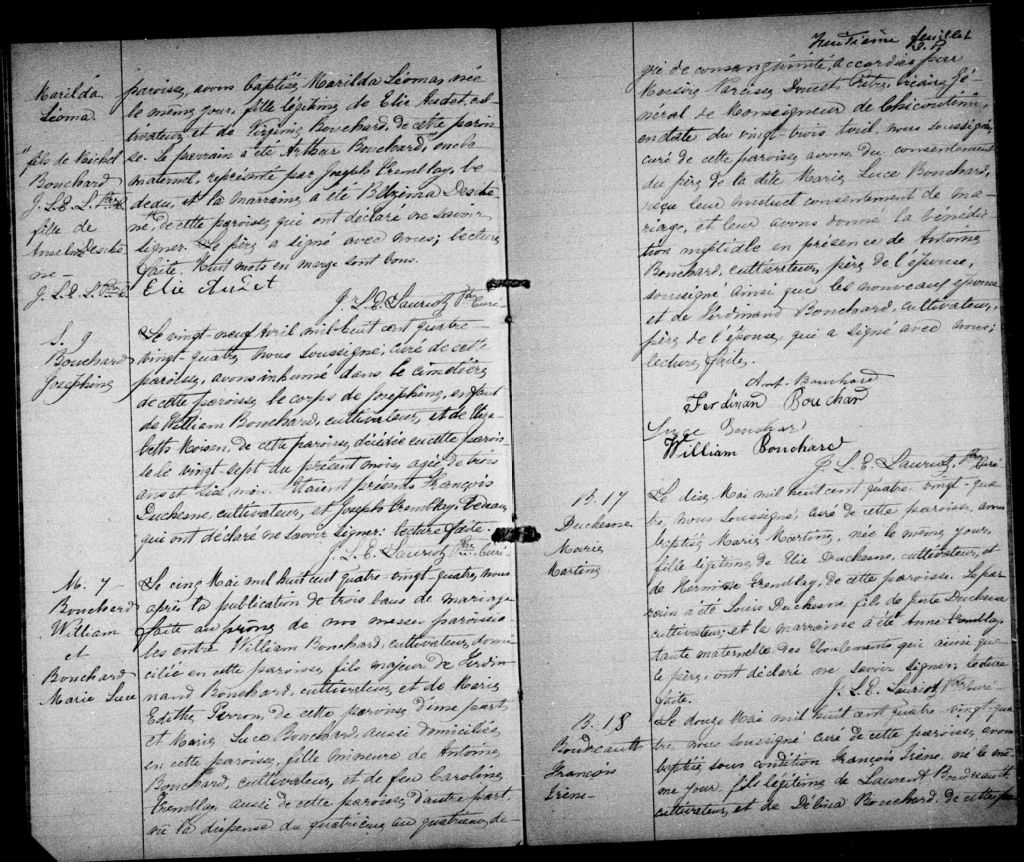 Marilda
Léoma.
"fils de Michel
Bouchard
J. L. E. L. Ptre C.
fille de
Anselme Desche
ne-
J. L. E. L. Ptre C.
paroisse, avons baptisé Marilda Léoma, née
le même jour, fille légitime de Elie Audet, cul
tivateur, et de Virginie Bouchard, de cette parois
se. Le parrain a été Arthur Bouchard, oncle
maternel, représenté par Joseph Tremblay, be
deau, et la marraine a été Desche
ne, de cette paroisse qui ont déclaré ne savoir
signer. Le père a signé avec nous; lecture
faite. Huit mots en marge sont bons.
Elie Audet
J. L. E. Lauriot Ptre Curé
S. 9
Bouchard
Joséphine
Le vingt-neuf Avril mil huit cent quatre-
vingt-quatre, nous soussigné, curé de cette
paroisse, avons inhumé dans le cimetière
de cette paroisse le corps de Joséphine, enfant
de William Bouchard, cultivateur, et de Eliza
beth, de cette paroisse, décédée en cette parois
se le vingt-sept du présent mois, agée de trois
ans et six mois. Etaient présents François
Duchesne, cultivateur, et Joseph Tremblay, Bedeau,
qui ont déclaré ne savoir signer: lecture faite.
J. L. E. Lauriot Ptre Curé
M. 7
Bouchard
William
et
Bouchard
Marie Luce
Le cinq Mai mil huit cent quatre-vingt-quatre, nous
après la publication de trois bans de mariage
faite au prône de nos messes paroissia
les entre William Bouchard, cultivateur, domi
cilié en cette paroisse, fils majeur de Ferdi
nand Bouchard, cultivateur, et de Marie
Edithe Perron, de cette paroisse, d'une part,
et Marie Luce Bouchard, aussi domiciliée
en cette paroisse, fille mineure de Antoine
Bouchard, cultivateur, et de feu Caroline
Tremblay, aussi de cette paroisse, d'autre part,
vu la dispense du quatrième au quatrième de-
feuillet
gré de consanguinité accordée par
Messire Narcisse Doucet, Ptre, vicaire gé-
néral de Monseigneur de Chicoutimi,
en date du vingt-trois Avril, nous soussigné,
curé de cette paroisse, avons, du consentement
du père de la dite Marie Luce Bouchard,
reçu leur mutuel consentement de ma
riage, et leur avons donné la bénédic
tion nuptiale en présence de Antoine
Bouchard, cultivateur, père de l'épouse,
soussigné ainsi que les nouveaux époux
et de Ferdinand Bouchard, cultivateur,
père de l'époux, qui a signé avec nous;
lecture faite.
Ant. Bouchard
Ferdinan Bouchar
Bouchard
William Bouchard
J. L. E. Lauriot, Ptre Curé
B. 17
Duchesne
Marie
Martine
Le dix Mai mil huit cent quatre-vingt-qua
tre, nous soussigné, curé de cette paroisse, avons
baptisé Marie Martine, née le même jour,
fille légitime de Elie Duchesne, cultivateur, et
de Herminie Tremblay, de cette paroisse. Le par
rain a été Louis Duchesne fils de Juste Duchesne
cultivateur, et la marraine a été Anne Tremblay,
tante maternelle, des Eboulements qui ainsi que
le père, ont déclaré ne savoir signer; lecture
faite.
J. L. E. Lauriot, Ptre Curé-
B. 18
Boudreault
François
Irène-
Le douze Mai mil huit cent quatre-vingt-qua
tre, nous soussigné curé de cette paroisse, avons
baptisé sous condition François Irène, né le mê
me jour, fils légitime de Laurent Boudreault
cultivateur, et de Bouchard, de cette